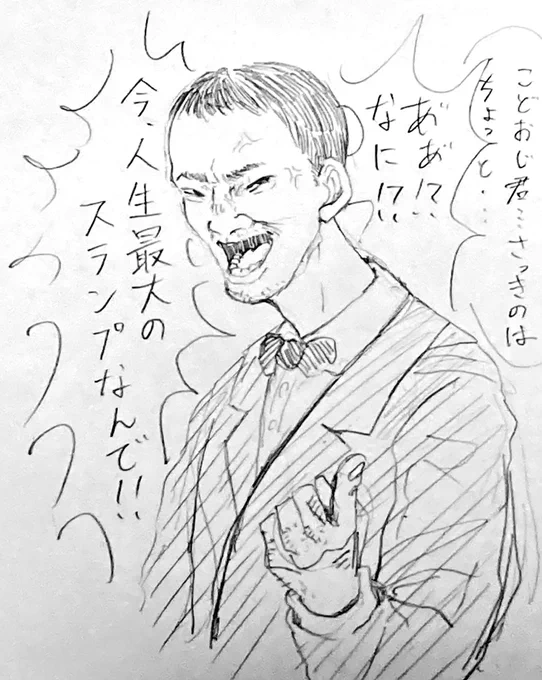 こどおじ君…さっきのは
ちょっと・・・
あ゛あ゛!?
なに!?
今、人生最大の
スランプなんで!!